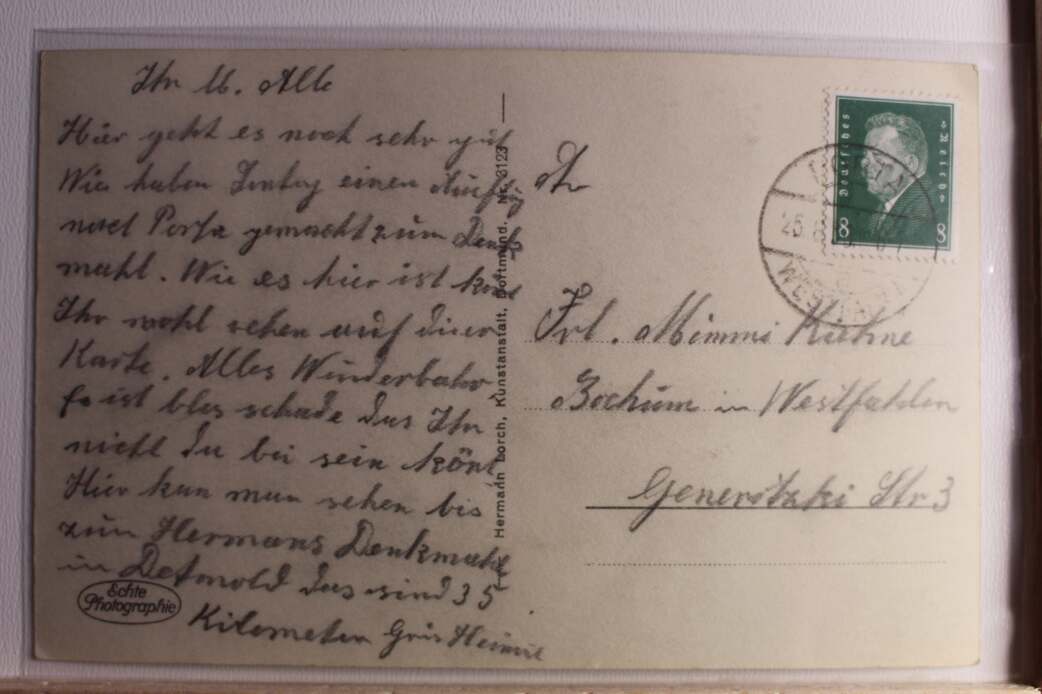 Ihr u. Alle
Hier geht es noch sehr gut
Wir haben einen Ausflug
nach Porta gemacht zum Denk
mahl. Wie es hier ist könt
Ihr wohl sehen auf dieer
Karte. Alles Wunderbahr
Es ist blos schade das Ihr
nicht du bei sein könt
Hier kan man sehen bis
zum Hermans Denkmahl
in Detmold das sind 35
Kilometer Grus Heinie
Echte
Photographie
Hermann Lorch, Kunstanstalt, Dortmund. Nr. 3123
An
Frl. Mimmi Kühne
Bochum in Westfahlen
Str 3
Deutsches Reich
8 8
PORTA
WESTFALICA